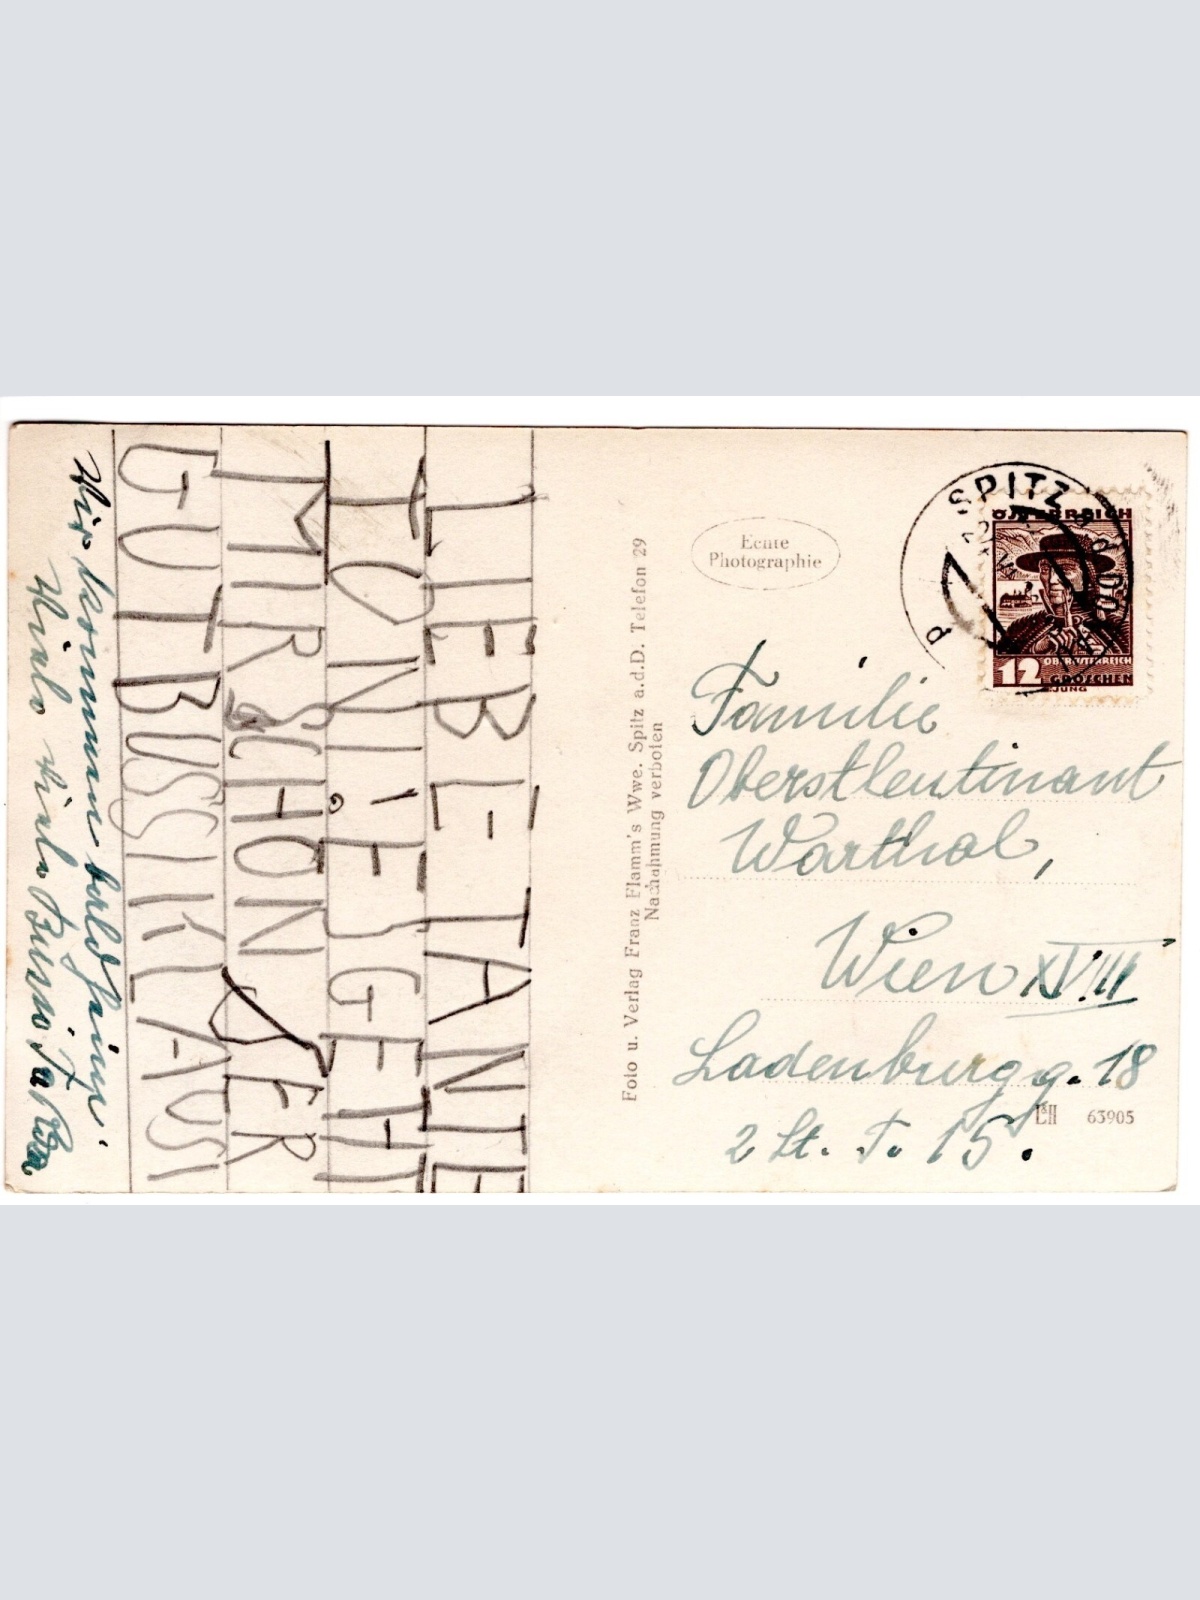 LIEBE TANTE
TONI! ES GEHT
MIR SCHON SER
GUT BUSSI KLAUS!
Wir kommen bald heim!
Viele viele Bussi
Foto u. Verlag Franz Flamm's Wwe. Spitz a.d.D. Telefon 29
Nachahmung verboten
Echte
Photographie
SPITZ a d DO
ÖSTERREICH
12 OBERÖSTERREICH
GROSCHEN
Familie
Oberstleutinant
Warthol,
Wien XVIII
Ladenburgg. 18
2 St. T. 15.
63905